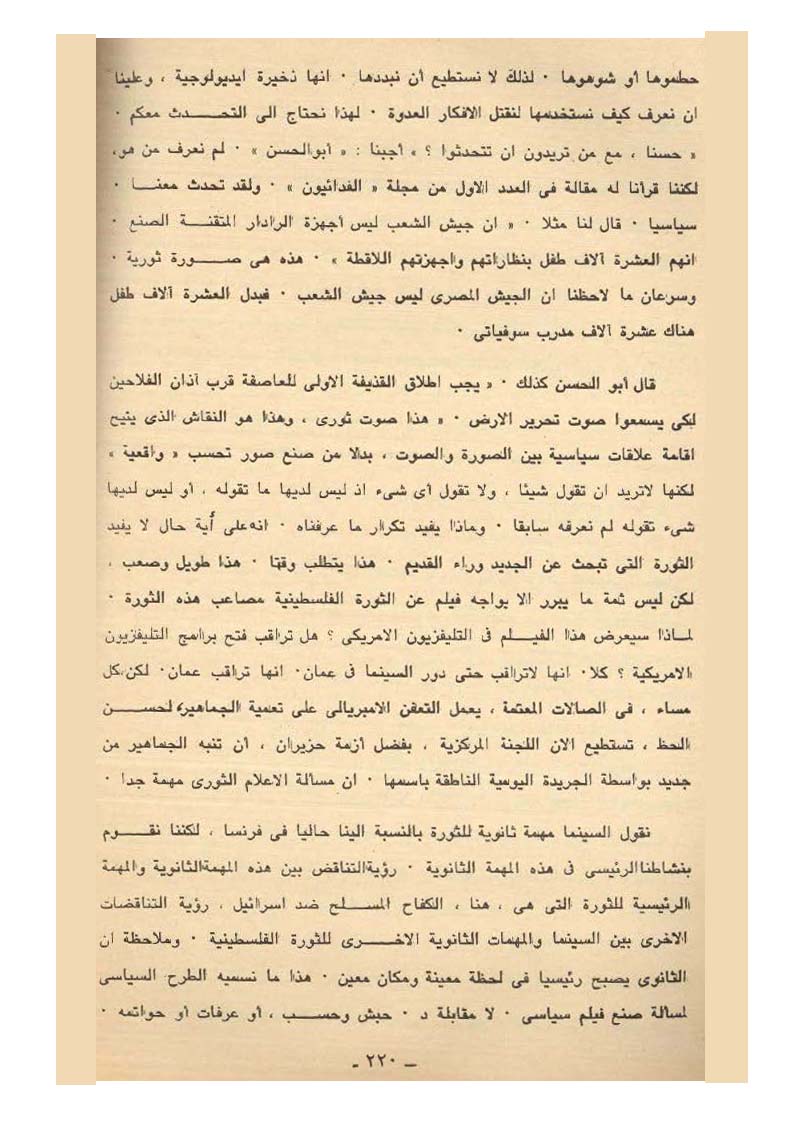 حطموها أو شوهوها ٠ لذلك لا نستطيع أن نبددها ٠ انها ذخيرة ايديولوجية ، وعلينا
ان نعرف كيف نستخدمها لنقتل الافكار العدوة ٠ لهذا نحتاج الى التحـــدث معكم ٠
« حسنا ، مع من تريدون ان تتحدثوا ؟ » أجبنا : « أبو الحسن » ٠ لم نعرف من هو،
لكننا قرأنا له مقالة فى العدد الاول من مجلة « الفدائيون » ٠ ولقد تحدث معنـــا ٠
سياسيا ٠ قال لنا مثلا ٠ « ان جيش الشعب ليس أجهزة الرادار المتقنـــة الصنع ٠
انهم العشرة آلاف طفل بنظاراتهم واجهزتهم اللاقطة » ٠ هذه هى صـــورة ثورية ٠
وسرعان ما لاحظنا ان الجيش المصرى ليس جيش الشعب ٠ فبدل العشرة آلاف طفل
هناك عشرة آلاف مدرب سوفياتى ٠
قال أبو الحسن كذلك ٠ « يجب اطلاق القذيفة الاولى للعاصفة قرب آذان الفلاحين
لكى يسمعوا صوت تحرير الارض ٠ « هذا صوت ثورى ، وهذا هو النقاش الذى يتيح
اقامة علاقات سياسية بين الصورة والصوت ، بدلا من صنع صور تحسب « واقعية »
لكنها لاتريد ان تقول شيئا ، ولا تقول أى شىء اذ ليس لديها ما تقوله ، أو ليس لديها
شىء تقوله لم نعرفه سابقا ٠ وماذا يفيد تكرار ما عرفناه ٠ انه على أية حال لا يفيد
الثورة التى تبحث عن الجديد وراء القديم ٠ هذا يتطلب وقتا ٠ هذا طويل وصعب ،
لكن ليس ثمة ما يبرر الا يواجه فيلم عن الثورة الفلسطينية مصاعب هذه الثورة ٠
لماذا سيعرض هذا الفيـــلم فى التليفزيون الامريكى ؟ هل تراقب فتح برامج التليفزيون
الامريكية ؟ كلا٠ انها لاتراقب حتى دور السينما فى عمان٠ انها تراقب عمان٠ لكن،كل
مساء ، فى الصالات المعتمة ، يعمل التعفن الامبريالى على تعمية الجماهير، لحســـن
الحظ ، تستطيع الان اللجنة المركزية ، بفضل أزمة حزيران ، أن تنبه الجماهير من
جديد بواسطة الجريدة اليومية الناطقة باسمها ٠ ان مسألة الاعلام الثورى مهمة جدا ٠
نقول السينما مهمة ثانوية للثورة بالنسبة الينا حاليا فى فرنسا ، لكننا نقـــوم
بنشاطنا الرئيسى فى هذه المهمة الثانوية ٠ رؤية التناقض بين هذه المهمة الثانوية والمهمة
الرئيسية للثورة التى هى ، هنا ، الكفاح المســـلح ضد اسرائيل ، رؤية التناقضات
الاخرى بين السينما والمهمات الثانوية الاخـــرى للثورة الفلسطينية ٠ وملاحظة ان
الثانوى يصبح رئيسيا فى لحظة معينة ومكان معين ٠ هذا ما نسميه الطرح السياسى
لمسألة صنع فيلم سياسى ٠ لا مقابلة د ٠ حبش وحســـب ، أو عرفات أو حواتمه ٠
ـ ٢٢٠ ـ